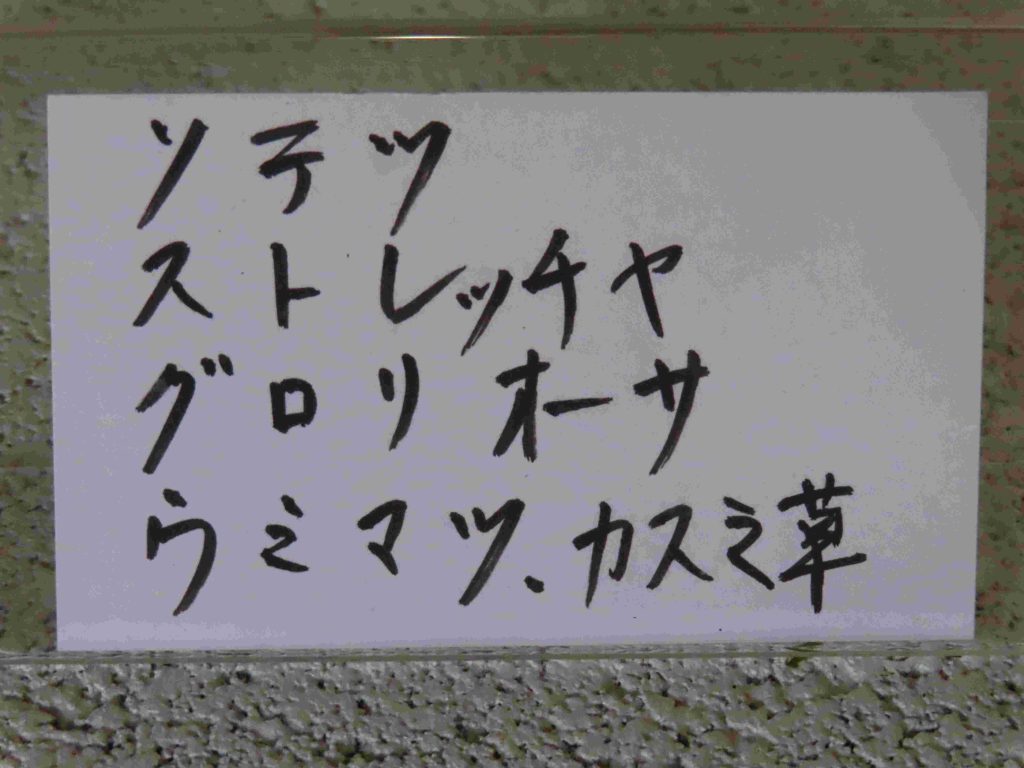 ソテツ
ストレッチヤ
グロリオーサ
ウミマツ、カスミ草